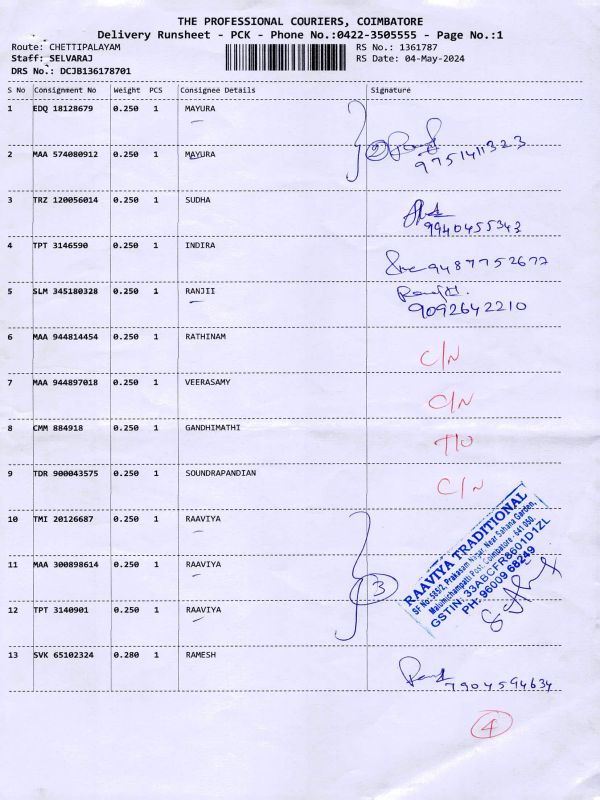 THE PROFESSIONAL COURIERS, COIMBATORE
Delivery Runsheet - PCK - Phone No.:0422-3505555 - Page No.:1
Route: CHETTIPALAYAM RS No.: 1361787
Staff: SELVARAJ RS Date: 04-May-2024
DRS No.: DCJB136178701
S No Consignment No Weight PCS Consignee Details Signature
1 EDQ 18128679 0.250 1 MAYURA
2 MAA 574080912 0.250 1 MAYURA
2 9751411323
3 TRZ 120056014 0.250 1 SUDHA
9940455343
4 TPT 3146590 0.250 1 INDIRA
9487752677
5 SLM 345180328 0.250 1 RANJII
9092642210
6 MAA 944814454 0.250 1 RATHINAM C/N
7 MAA 944897018 0.250 1 VEERASAMY C/N
8 CMM 884918 0.250 1 GANDHIMATHI T/O
9 TDR 900043575 0.250 1 SOUNDRAPANDIAN C/N
10 TMI 20126687 0.250 1 RAAVIYA
11 MAA 300898614 0.250 1 RAAVIYA
12 TPT 3140901 0.250 1 RAAVIYA
3
RAAVIYA TRADITIONAL
SF No: 585/2, Prakasam Nagar, Near Sahana Garden,
Malumichampatti Post, Coimbatore - 641 050.
GSTIN: 33ABCFR8601D1ZL
PH: 96009 68249
13 SVK 65102324 0.280 1 RAMESH
7904594634
4